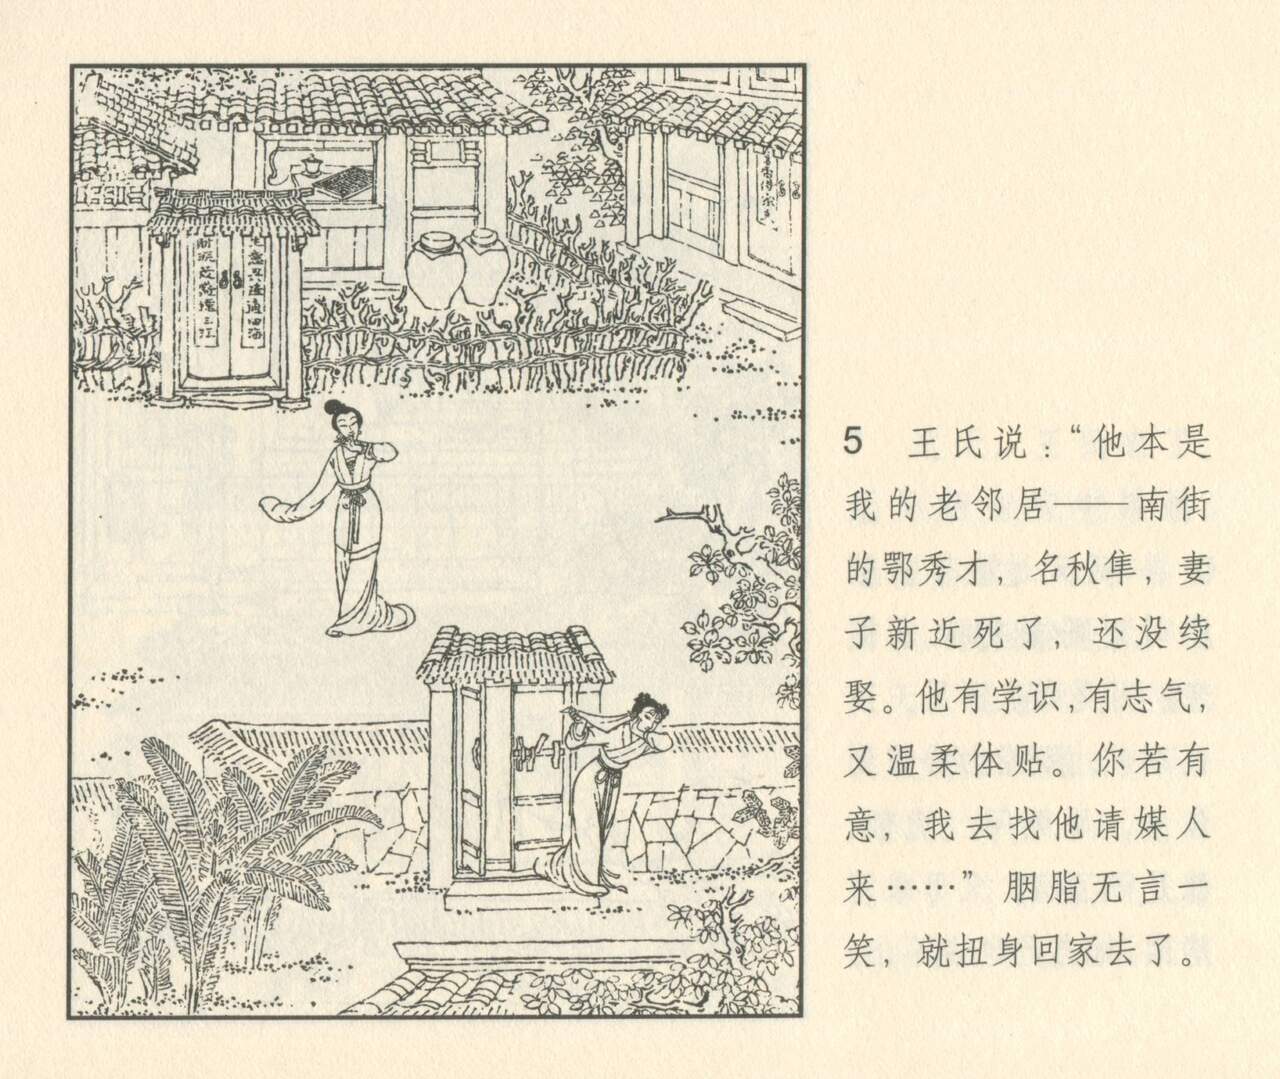 生意兴隆通四海
财源茂盛达三江
5 王氏说：“他本是
我的老邻居——南街
的鄂秀才，名秋隼，妻
子新近死了，还没续
娶。他有学识，有志气，
又温柔体贴。你若有
意，我去找他请媒人
来……”胭脂无言一
笑，就扭身回家去了。